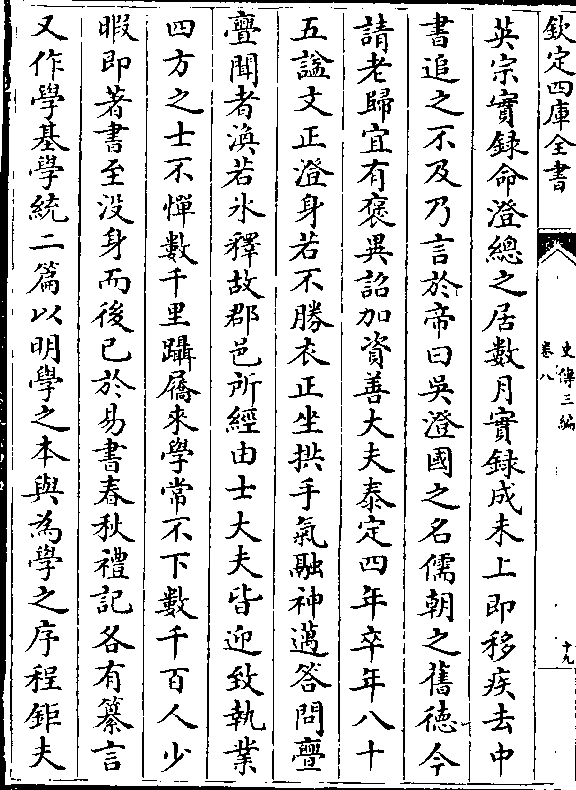 欽定四庫全書
史傳三編
卷八
十九
英宗實録命澄總之居數月實録成未上即移疾去中
書追之不及乃言於帝曰吳澄國之名儒朝之舊徳今
請老歸宜有褒異詔加資善大夫泰定四年卒年八十
五諡文正澄身若不勝衣正坐拱手氣融神邁答問亹
亹聞者渙若氷釋故郡邑所經由士大夫皆迎致執業
四方之士不憚數千里躡屩來學常不下數千百人少
暇即著書至没身而後已於易書春秋禮記各有纂言
又作學基學統二篇以明學之本與為學之序程鉅夫